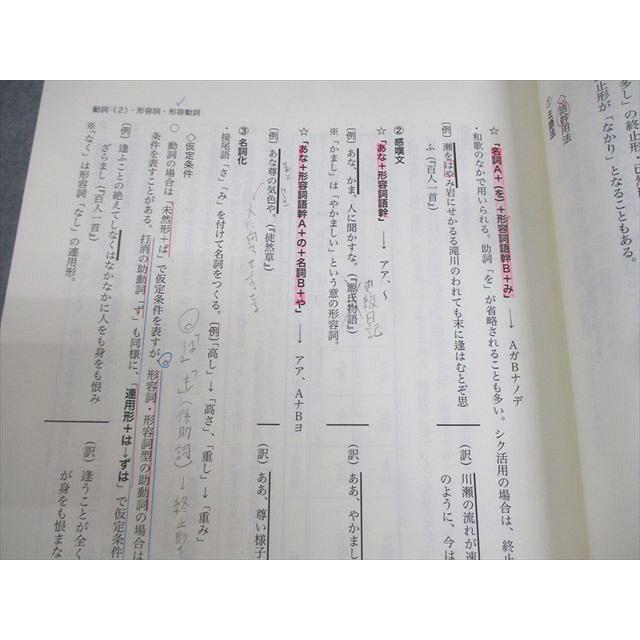 多し」の終止形、已然形
形が「なかり」となることもある。
◇語幹用法
☆「名詞A+(を)+形容詞語幹B+み」→ AガBナノデ
・和歌のなかで用いられる。助詞「を」が省略されることも多い。シク活用の場合は、終止
(例) 瀬をはやみ岩にせかるる滝川のわれても末に逢はむとぞ思
ふ(『百人一首』)
(訳) 川瀬の流れが速
のように、今は
② 感嘆文
☆「あな+形容詞語幹」→ アア、〜
(例) あな、かま。人に聞かすな。(『源氏物語』)
更級日記
(訳) ああ、やかまし
※「かまし」は「やかましい」という意の形容詞。
☆「あな+形容詞語幹A+の+名詞B+や」→ アア、AナBヨ
(例) あな尊の気色や。(『徒然草』)
(訳) ああ、尊い様子
③ 名詞化
・接尾語「さ」「み」を付けて名詞をつくる。(例)「高し」→「高さ」、「重し」→「重み」
◇仮定条件
「は」も(係助詞)→終止形で
○ 動詞の場合は「未然形+ば」で仮定条件を表すが、形容詞・形容詞型の助動詞の場合は
条件を表すことがある。打消の助動詞「ず」も同様に、「連用形+は→ずは」で仮定条件
(例) 逢ふことの絶えてしなくはなかなかに人をも身をも恨み
ざらまし(『百人一首』)
(訳) 逢うことが全く
が身をも恨まな
※「なく」は形容詞「なし」の連用形。
動詞(2)・形容詞・形容動詞